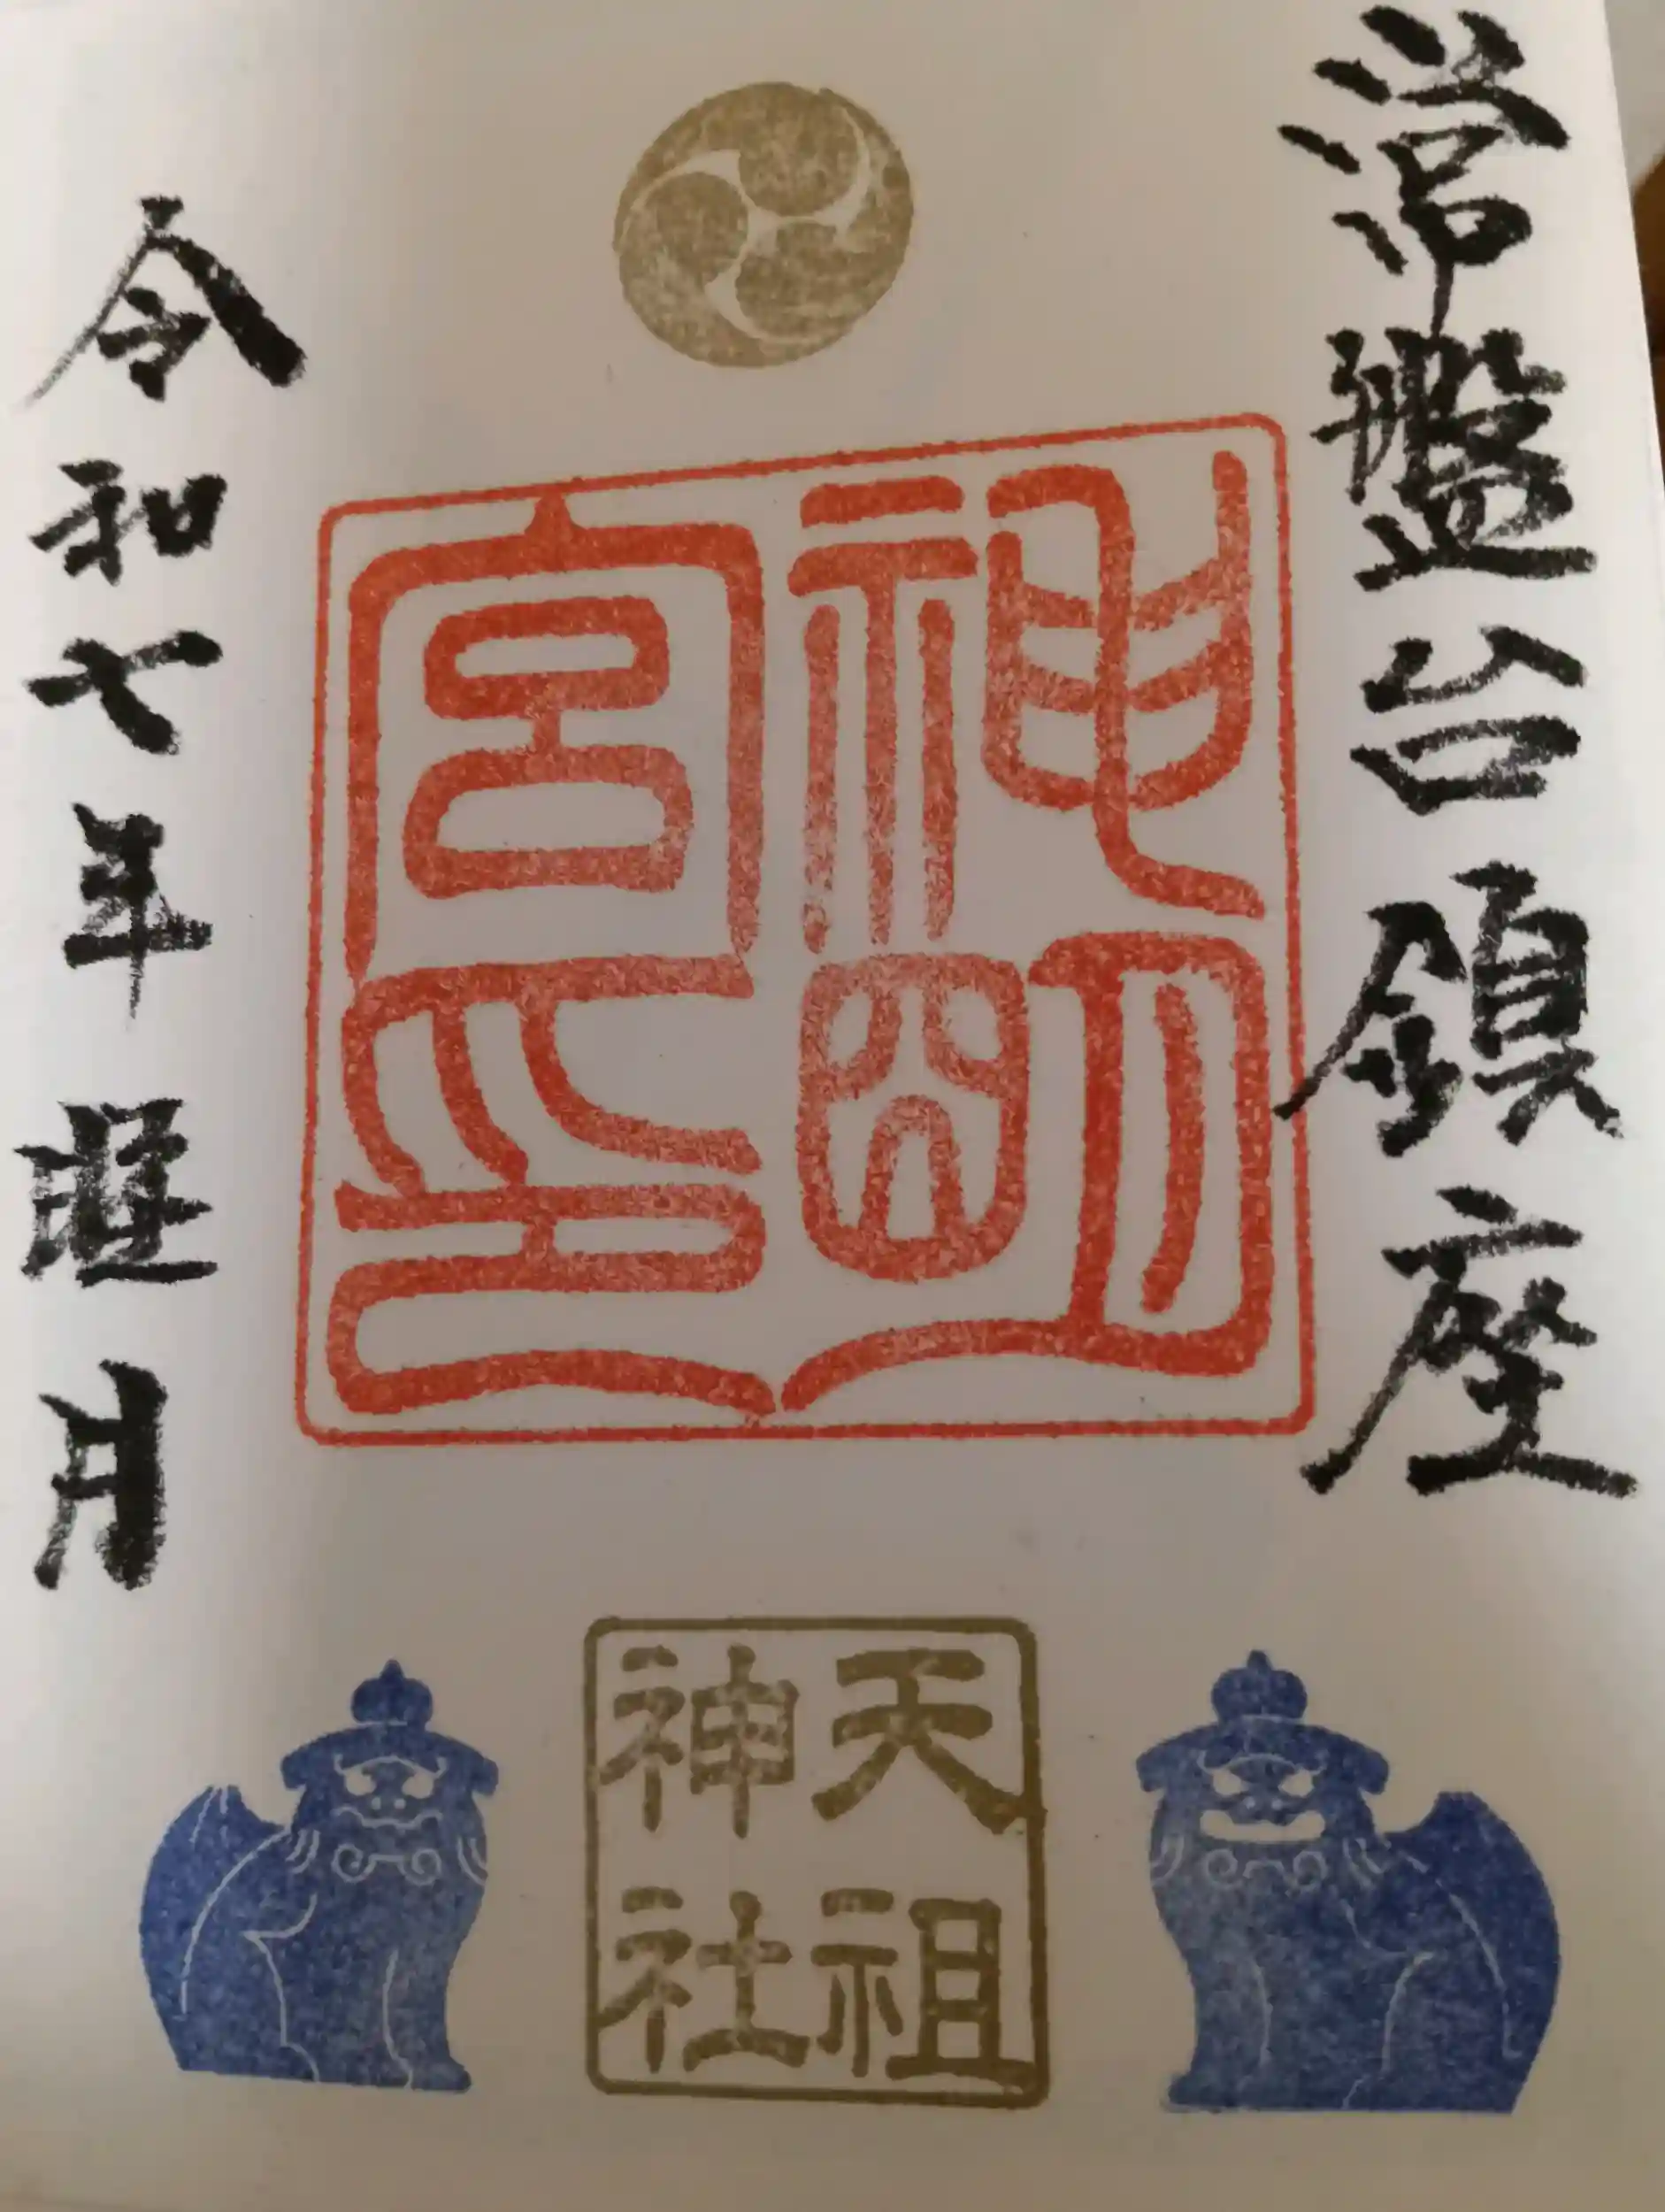 常盤台鎮座
神明
宮印
天祖
神社
令和七年 月